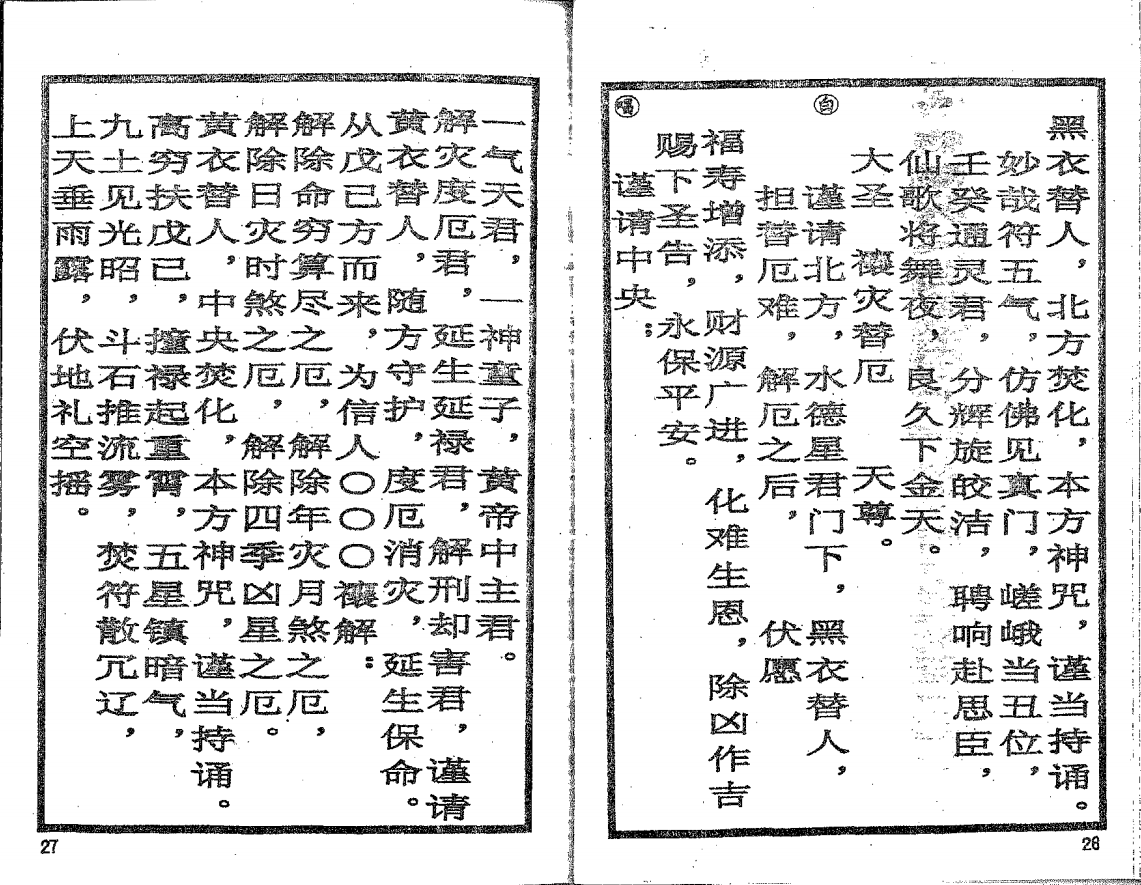 黑衣替人，北方焚化，本方神咒，谨当持诵。
妙哉符五气，仿佛见真门，嵯峨当丑位，
壬癸通灵君，分辉旋皎洁，聘响赴思臣，
仙歌将舞夜，良久下金天。
大圣　禳灾替厄　天尊。
㊀白
谨请北方，水德星君门下，黑衣替人，
担替厄难，解厄之后，伏愿
福寿增添，财源广进，化难生恩，除凶作吉
赐下圣告，永保平安。
唱
谨请中央；
26
一气天君，一神童子，黄帝中主君。
解灾度厄君，延生延禄君，解刑却害君，谨请
黄衣替人，随方守护，度厄消灾，延生保命。
从戊己方而来，为信人〇〇〇禳解：
解除命穷算尽之厄，解除年灾月煞之厄，
解除日灾时煞之厄，解除四季凶星之厄。
黄衣替人，中央焚化，本方神咒，谨当持诵。
高穷扶戊己，擅禄起重霄，五星镇暗气，
九土见光昭，斗石推流雾，焚符散冗辽，
上天垂雨露，伏地礼空摇。
27